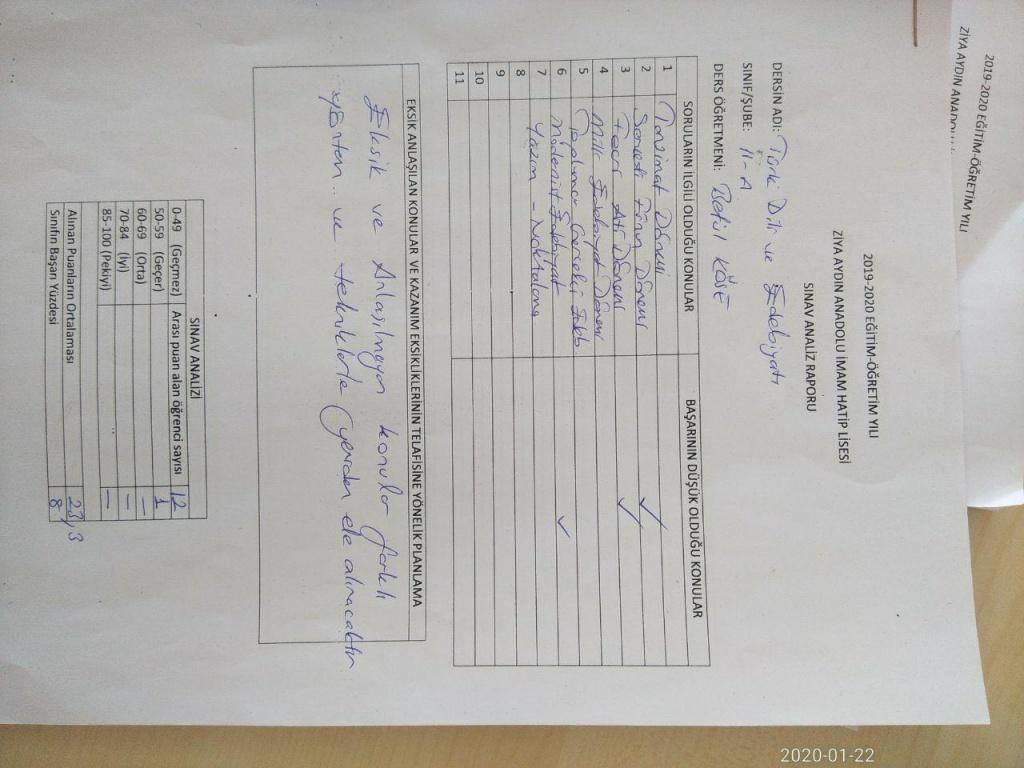 2019-2020 EĞİTİM-ÖĞRETİM YILI
2019-2020 EĞİTİM-ÖĞRETİM YILI
ZİYA AYDIN ANADOLU İMAM HATİP LİSESİ
SINAV ANALİZ RAPORU
DERSİN ADI: Türk Dili ve Edebiyatı
SINIF/ŞUBE: 11-A
DERS ÖĞRETMENİ: Betül KÖSE
SORULARIN İLGİLİ OLDUĞU KONULAR BAŞARININ DÜŞÜK OLDUĞU KONULAR
1 Tanzimat Dönemi
2 Serveti Fünun Dönemi ✓
3 Fecri Ati Dönemi ✓
4 Milli Edebiyat Dönemi
5 Toplumcu Gerçekçi Edeb.
6 Modernist Edebiyat ✓
7 Yazım - Noktalama
8
9
10
11
EKSİK ANLAŞILAN KONULAR VE KAZANIM EKSİKLİKLERİNİN TELAFİSİNE YÖNELİK PLANLAMA
Eksik ve Anlaşılmayan konular farklı
yöntem ve tekniklerle yeniden ele alınacaktır
SINAV ANALİZİ
0-49 (Geçmez) Arası puan alan öğrenci sayısı 12
50-59 (Geçer) 1
60-69 (Orta) —
70-84 (İyi) —
85-100 (Pekiyi) —
Alınan Puanların Ortalaması 23,3
Sınıfın Başarı Yüzdesi 8
2020-01-22